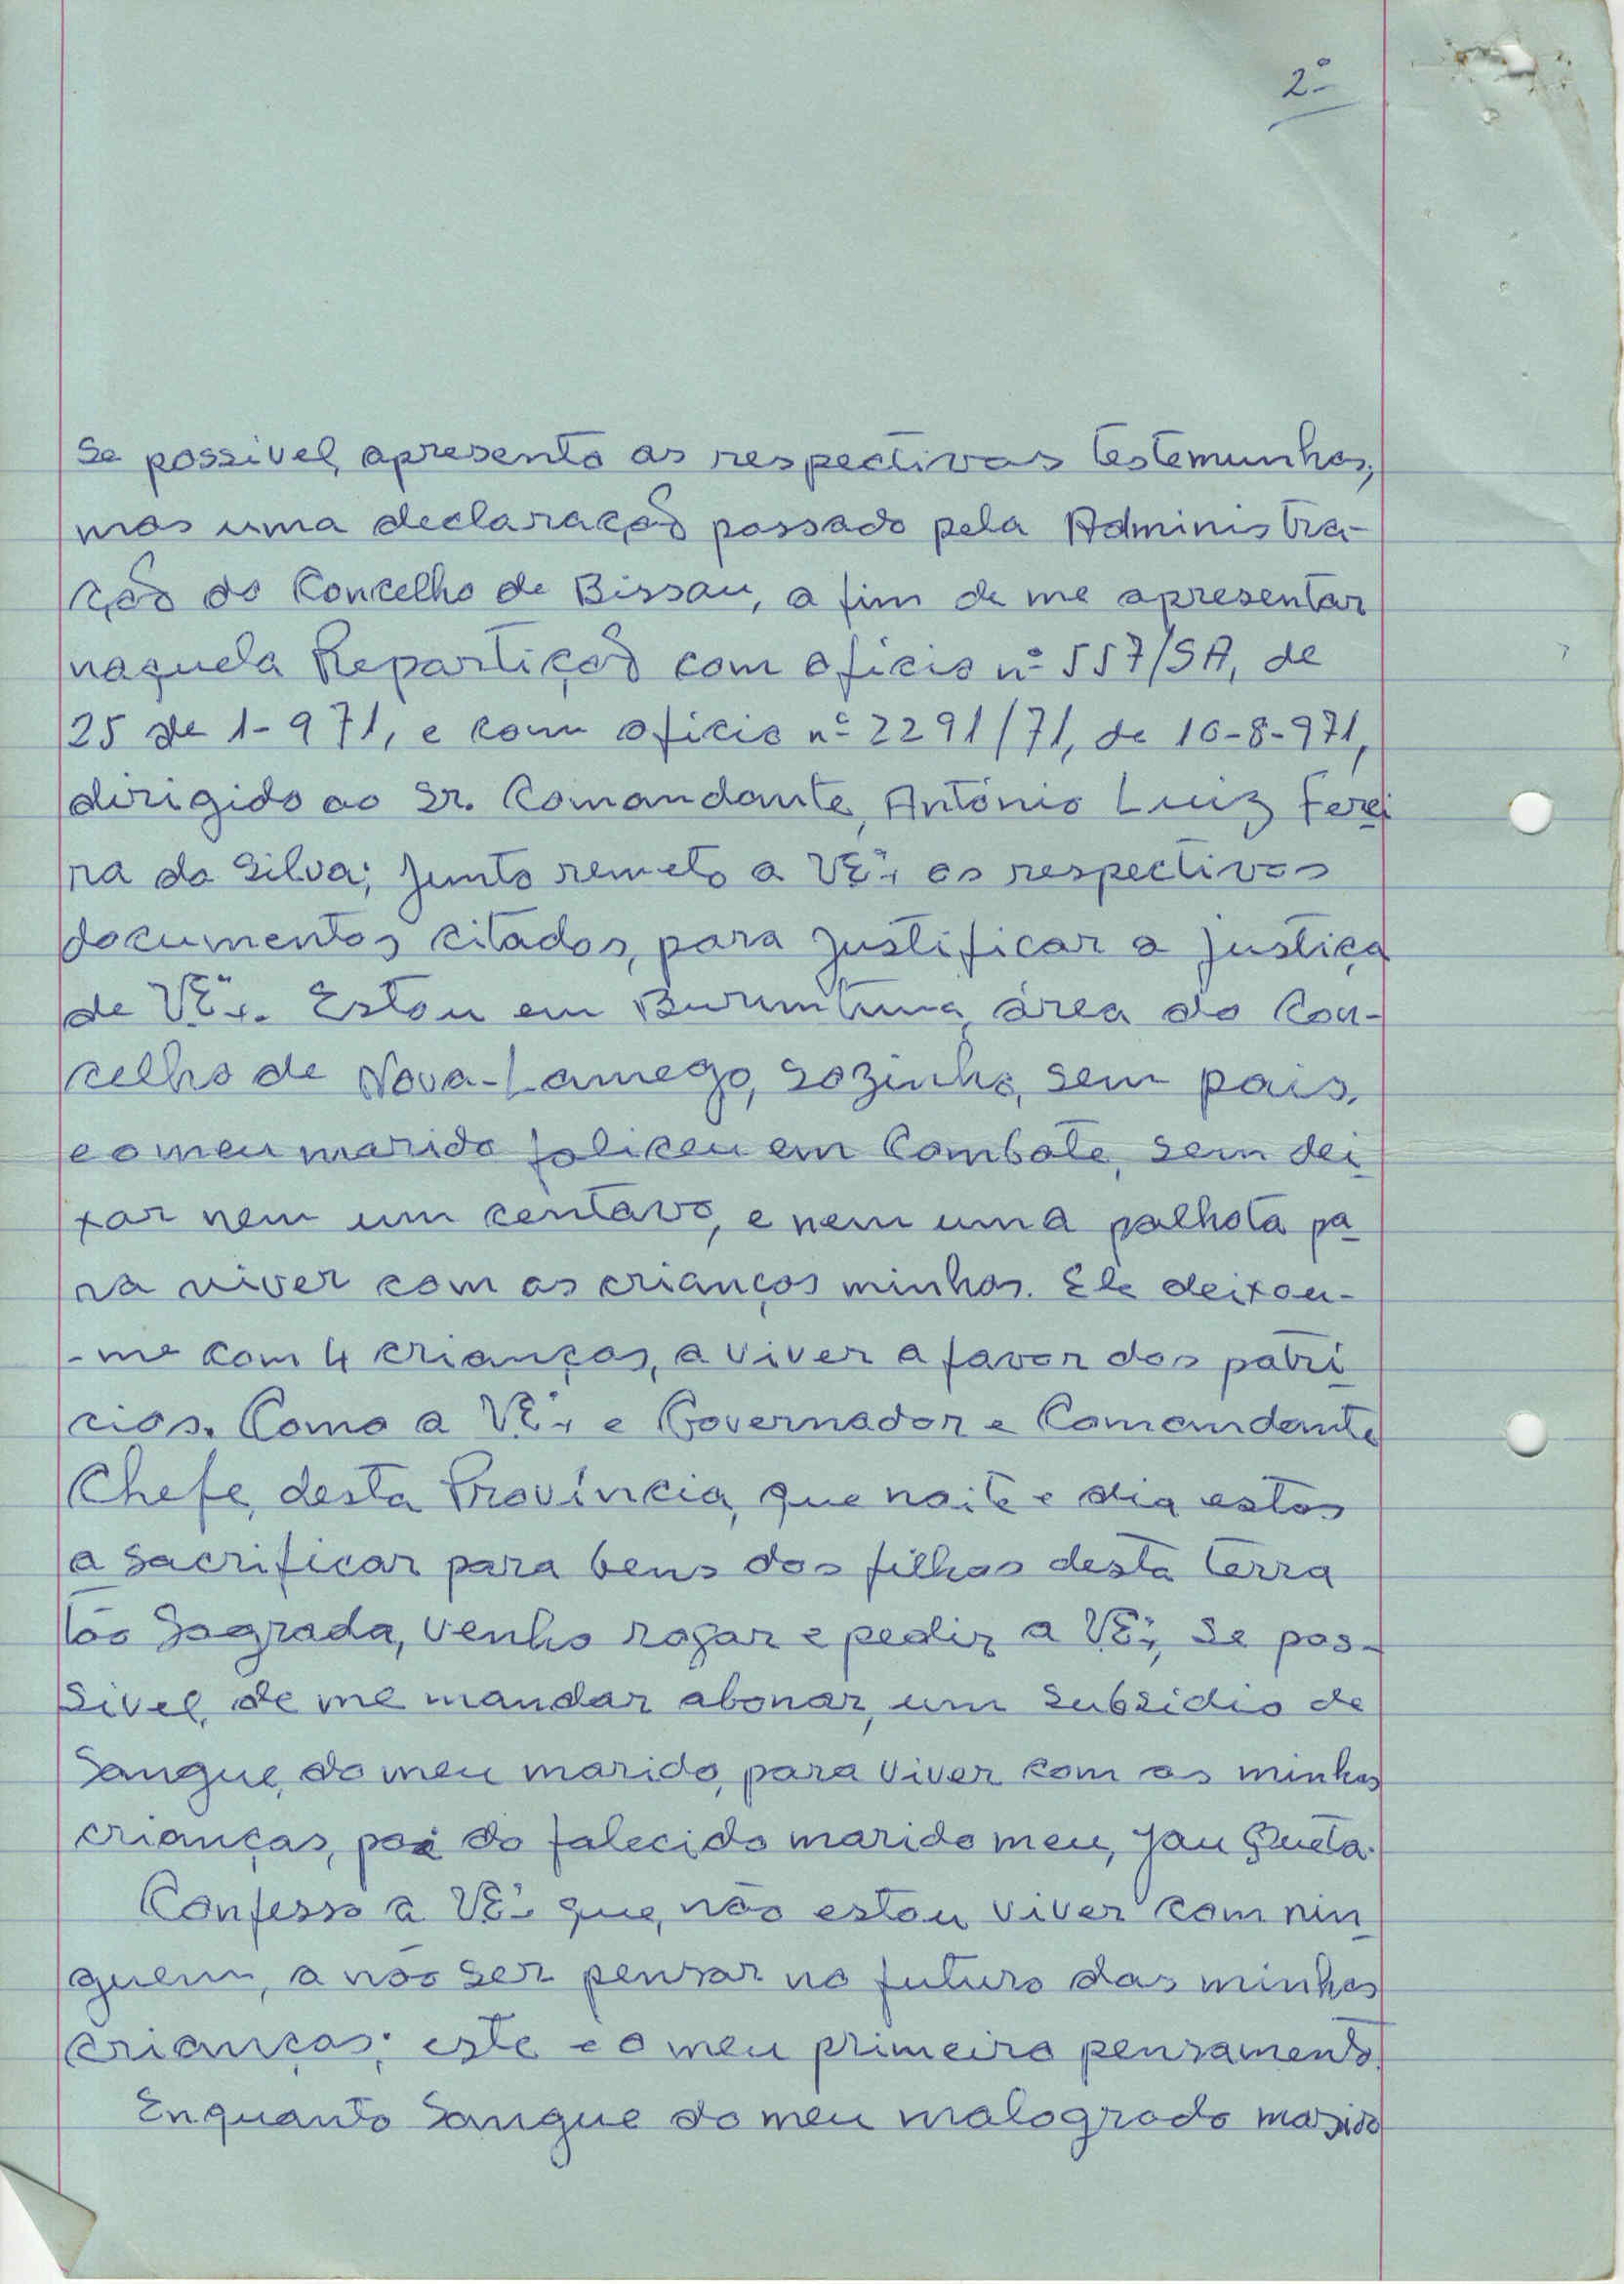 2º
Se possivel, apresento as respectivas testemunhas,
mas uma declaração passado pela Administra-
ção do Concelho de Bissau, a fim de me apresentar
naquela Repartição com oficio nº 557/SA, de
25 de 1-971, e com oficio nº 2291/71, de 10-8-971,
dirigido ao Sr. Comandante, António Luiz Ferei
ra da Silva; junto remeto a V.Exª os respectivos
documentos citados, para justificar a justiça
de V.Exª. Estou em Buruntuma, área do Con-
celho de Nova-Lamego, sozinha, sem pais,
e o meu marido faliceu em Combate, sem dei
xar nem um centavo, e nem uma palhota pa
ra viver com as crianças minhas. Ele deixou-
-me com 4 crianças, a viver a favor dos patri
cios. Como a V.Exª e Governador e Comandante
Chefe, desta Província, que noite e dia estas
a sacrificar para bens dos filhos desta terra
tão Sagrada, venho rogar e pedir a V.Exª, se pos-
sivel, de me mandar abonar, um subsidio de
Sangue, do meu marido, para viver com as minhas
crianças, pai do falecido marido meu, Jau Queta.
Confesso a V.Exª que, não estou viver com nin
guem, a não ser pensar no futuro das minhas
crianças; este e o meu primeiro pensamento.
Enquanto Sangue do meu malogrado marido